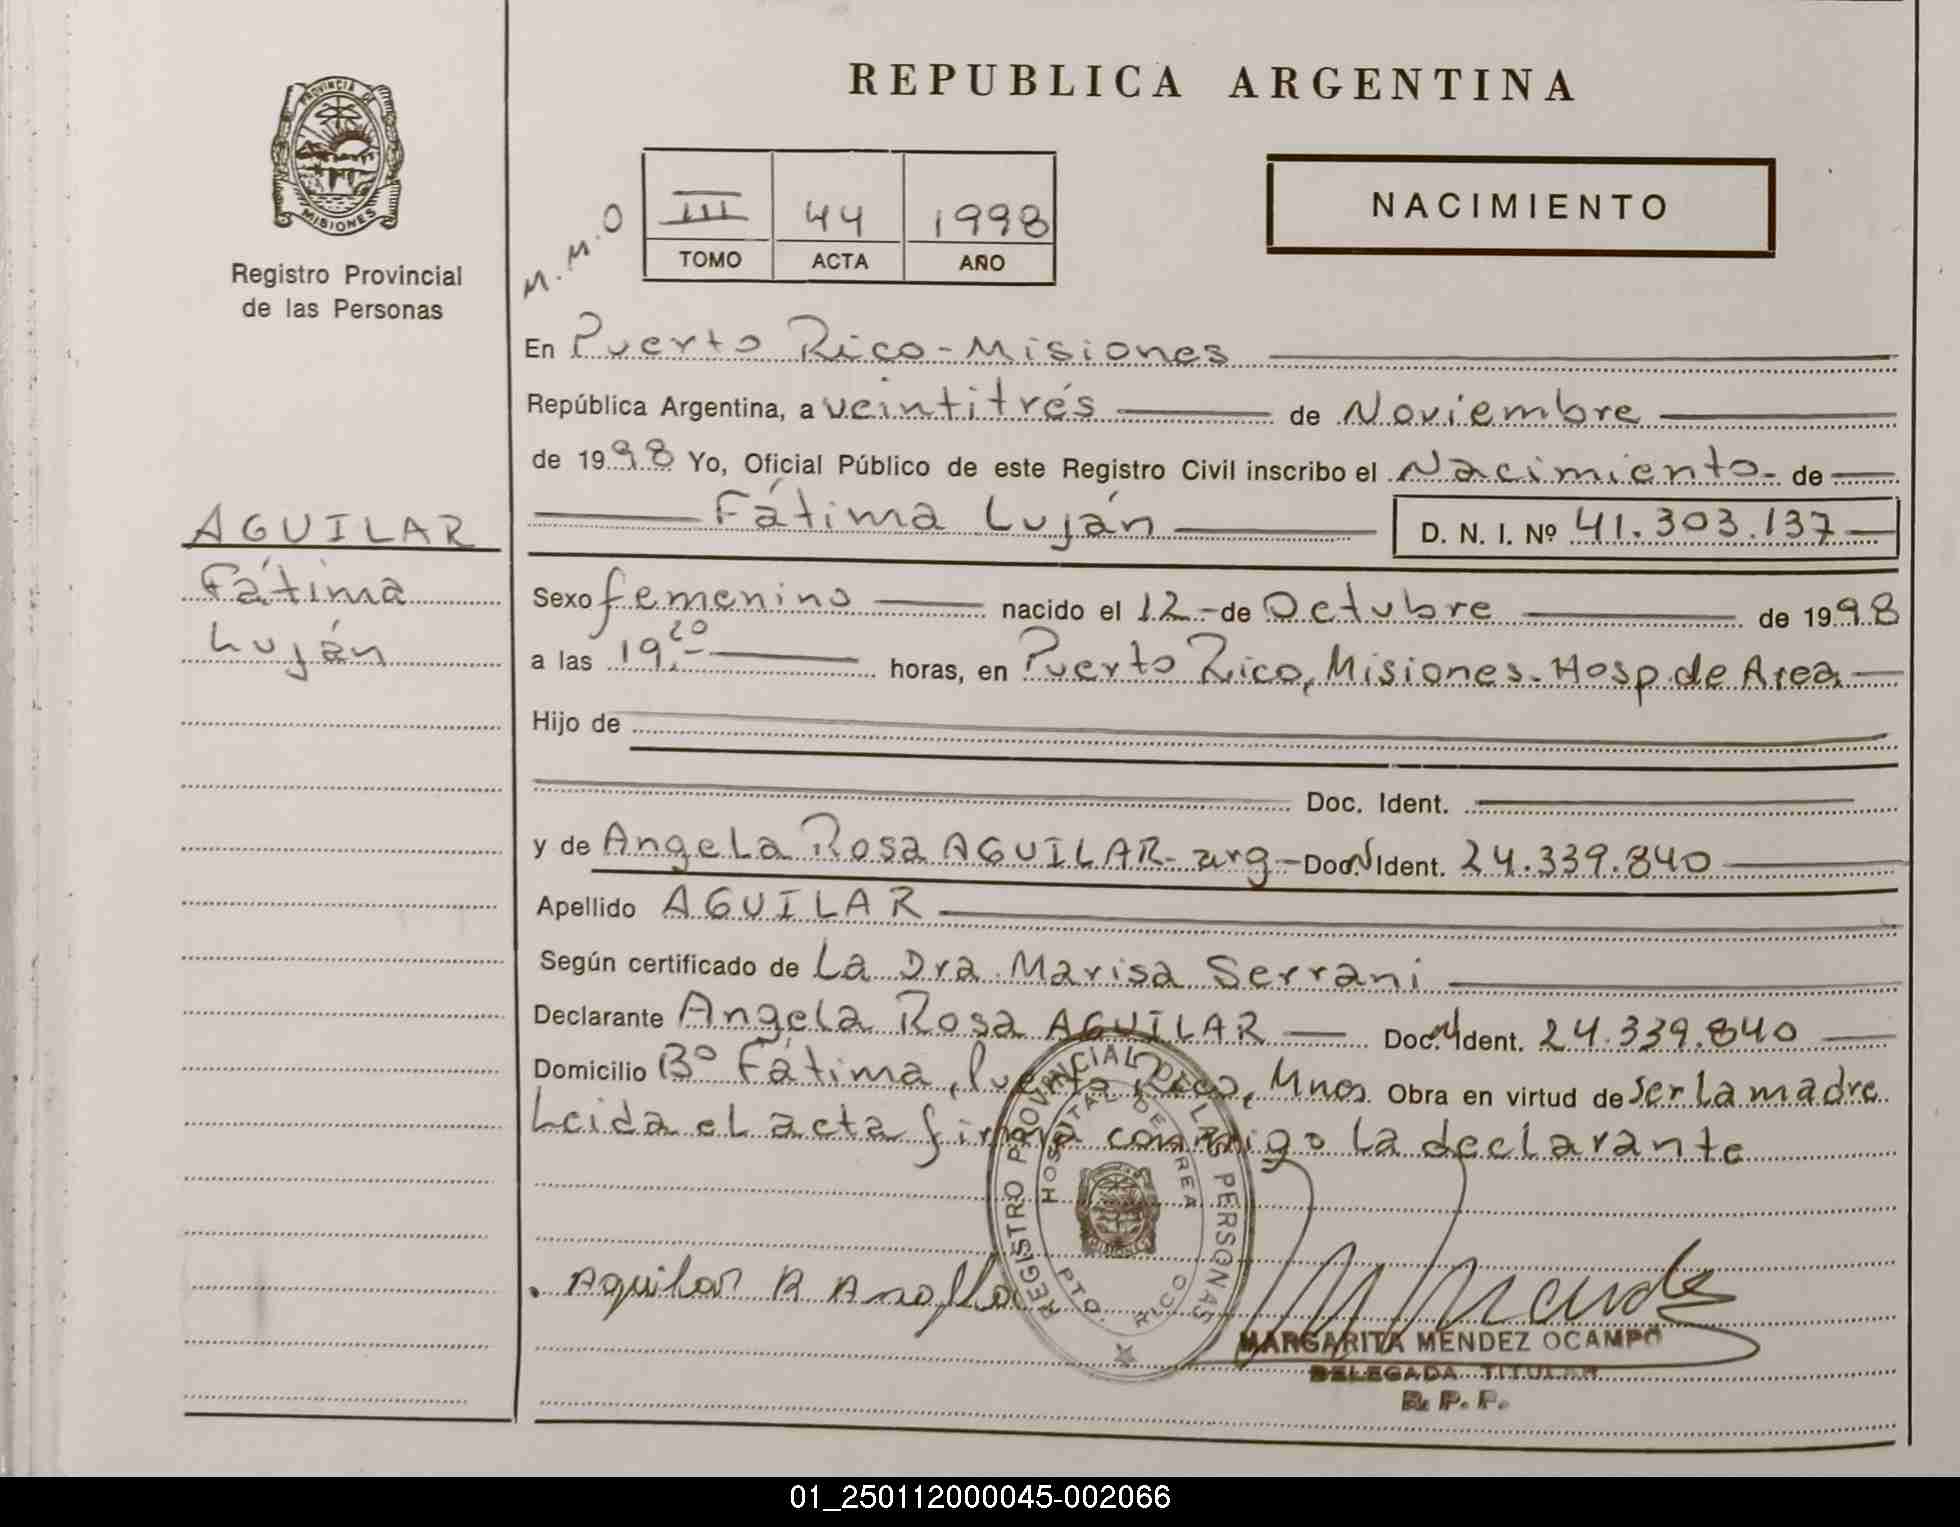 REPUBLICA ARGENTINA
PROVINCIA DE
MISIONES
Registro Provincial
de las Personas
M.M.O
III 44 1998
TOMO ACTA AÑO
NACIMIENTO
En Puerto Rico - Misiones
República Argentina, a veintitrés de Noviembre
de 1998 Yo, Oficial Público de este Registro Civil inscribo el Nacimiento - de
Fátima Luján D. N. I. Nº 41.303.137
AGUILAR
Fátima
Luján
Sexo femenino nacido el 12 - de Octubre de 1998
a las 19.20 horas, en Puerto Rico, Misiones - Hosp. de Area
Hijo de
Doc. Ident.
y de Angela Rosa AGUILAR - arg - Doc. N Ident. 24.339.840
Apellido AGUILAR
Según certificado de La Dra. Marisa Serrani
Declarante Angela Rosa AGUILAR Doc. N Ident. 24.339.840
Domicilio Bº Fátima, Puerto Rico, Mnes. Obra en virtud de ser la madre.
Leida el acta firma conmigo la declarante
REGISTRO PROVINCIAL DE LAS PERSONAS
HOSPITAL DE AREA
PTO. RICO
MISIONES
Aguilar R
M Mendez
MARGARITA MENDEZ OCAMPO
DELEGADA TITULAR
R. P. P.
01_250112000045-002066